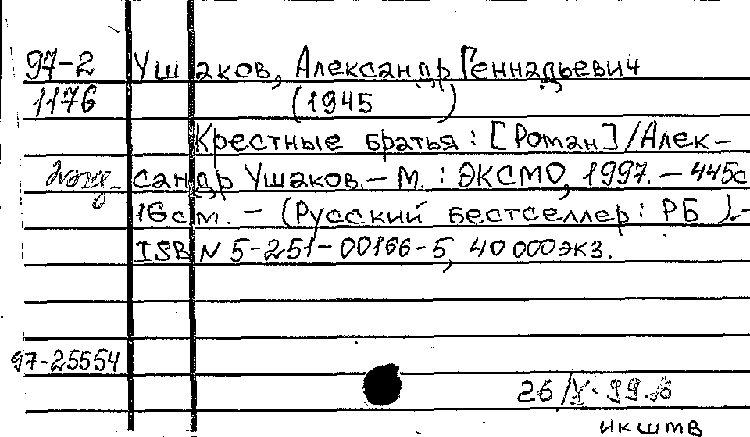 97-2 Ушаков, Александр Геннадьевич
1176 (1945 )
Крестные братья: [Роман]/Алек-
сандр Ушаков. – М. : ЭКСМО, 1997. – 445с
16см. – (Русский бестселлер: РБ ). –
ISBN 5-251-00166-5, 40 000 экз.
97-25554
26/X-99.
икштв